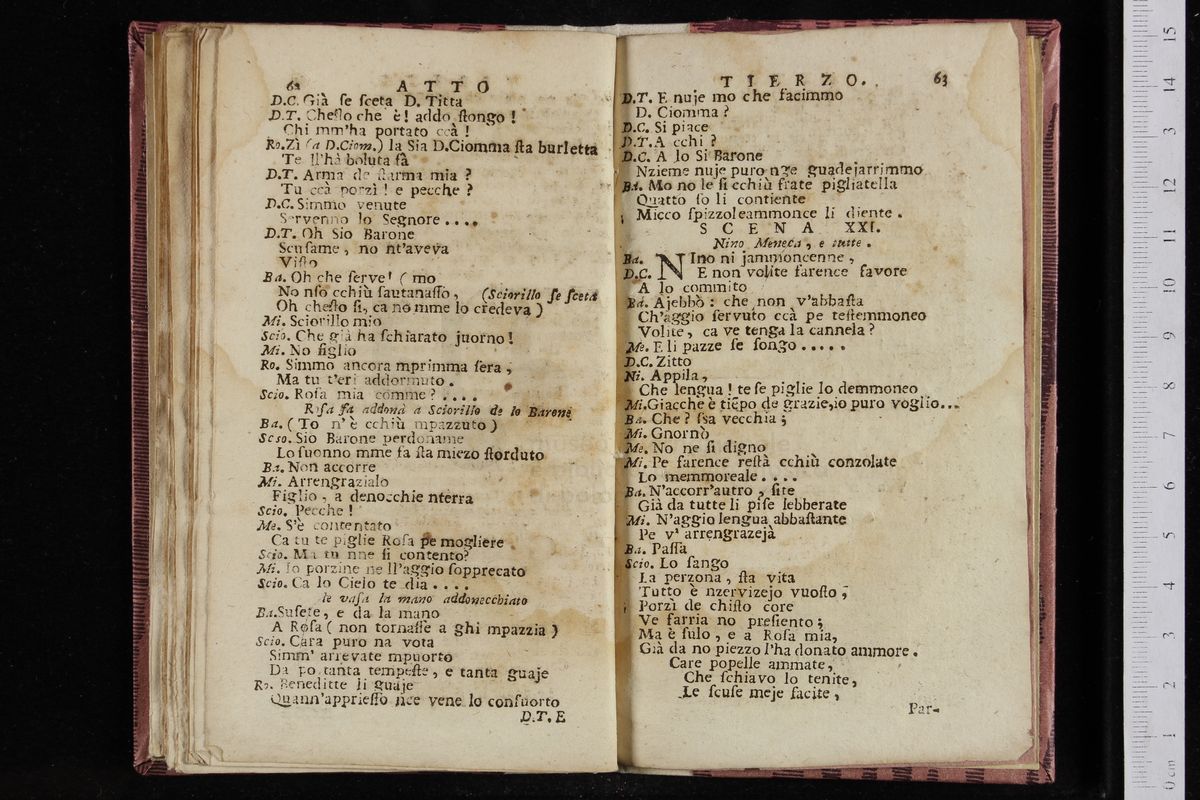 62 ATTO
D.C. Già ſe ſceta D. Titta
D.T. Cheſto che è! addo ſtongo!
Chi mm'ha portato ccà!
Ro. Zì (a D.Ciom.) la Sia D.Ciomma ſta burletta
Te ll'hà boluta fà
D.T. Arma de ſtarma mia?
Tu ccà porzì! e pecche?
D.C. Simmo venute
Servenno lo Segnore....
D.T. Oh Sio Barone
Scuſame, no nt'aveva
Viſto
Ba. Oh che ſerve! (mo
No nſo cchiù ſautanaſſo, (Sciorillo ſe ſceta
Oh cheſto ſi, ca no mme lo credeva)
Mi. Sciorillo mio
Scio. Che già ha ſchiarato juorno!
Mi. No figlio
Ro. Simmo ancora mprimma ſera,
Ma tu t'eri addormuto.
Scio. Roſa mia comme?....
Roſa fa addonà a Sciorillo de lo Barone
Ba. (To n'è cchiù mpazzuto)
Scio. Sio Barone perdoname
Lo ſuonno mme fa ſta miezo ſtorduto
Ba. Non accorre
Mi. Arrengrazialo
Figlio, a denocchie nterra
Scio. Pecche!
Me. S'è contentato
Ca tu te piglie Roſa pe mogliere
Scio. Ma tu nne ſi contento?
Mi. Io porzine ne ll'aggio ſopprecato
Scio. Ca lo Cielo te dia....
le vaſa la mano addonecchiato
Ba. Suſete, e da la mano
A Roſa (non tornaſſe a ghi mpazzia)
Scio. Cara puro na vota
Simm' arrevate mpuorto
Da po tanta tempeſte, e tanta guaje
Ro. Beneditte li guaje
Quann'apprieſſo nce vene lo conſuorto
D.T. E
TIERZO. 63
D.T. E nuje mo che facimmo
D. Ciomma?
D.C. Si piace
D.T. A cchi?
D.C. A lo Si Barone
Nzieme nuje puro nge guadejarrimmo
Ba. Mo no le ſi cchiù frate pigliatella
Quatto ſo li contiente
Micco ſpizzoleammonce li diente.
SCENA XXI.
Nino Meneca, e tutte.
Ba. NIno ni jammoncenne,
D.C. E non volite farence favore
A lo commito
Ba. Ajebbò: che non v'abbaſta
Ch'aggio ſervuto ccà pe teſtemmoneo
Volite, ca ve tenga la cannela?
Me. E li pazze ſe ſongo.....
D.C. Zitto
Ni. Appila,
Che lengua! te ſe piglie lo demmoneo
Mi. Giacche è tiēpo de grazie, io puro voglio...
Ba. Che? ſsa vecchia;
Mi. Gnornò
Me. No ne ſi digno
Mi. Pe farence reſtà cchiù conzolate
Lo memmoreale....
Ba. N'accorr'autro, ſite
Già da tutte li piſe lebberate
Mi. N'aggio lengua abbaſtante
Pe v' arrengrazejà
Ba. Paſſa
Scio. Lo ſango
La perzona, ſta vita
Tutto è nzervizejo vuoſto;
Porzì de chiſto core
Ve farria no preſiento;
Ma è ſulo, e a Roſa mia,
Già da no piezzo l'ha donato ammore.
Care popelle ammate,
Che ſchiavo lo tenite,
Le ſcuſe meje facite,
Par-
0 cm 1 2 3 4 5 6 7 8 9 10 11 12 3 14 15